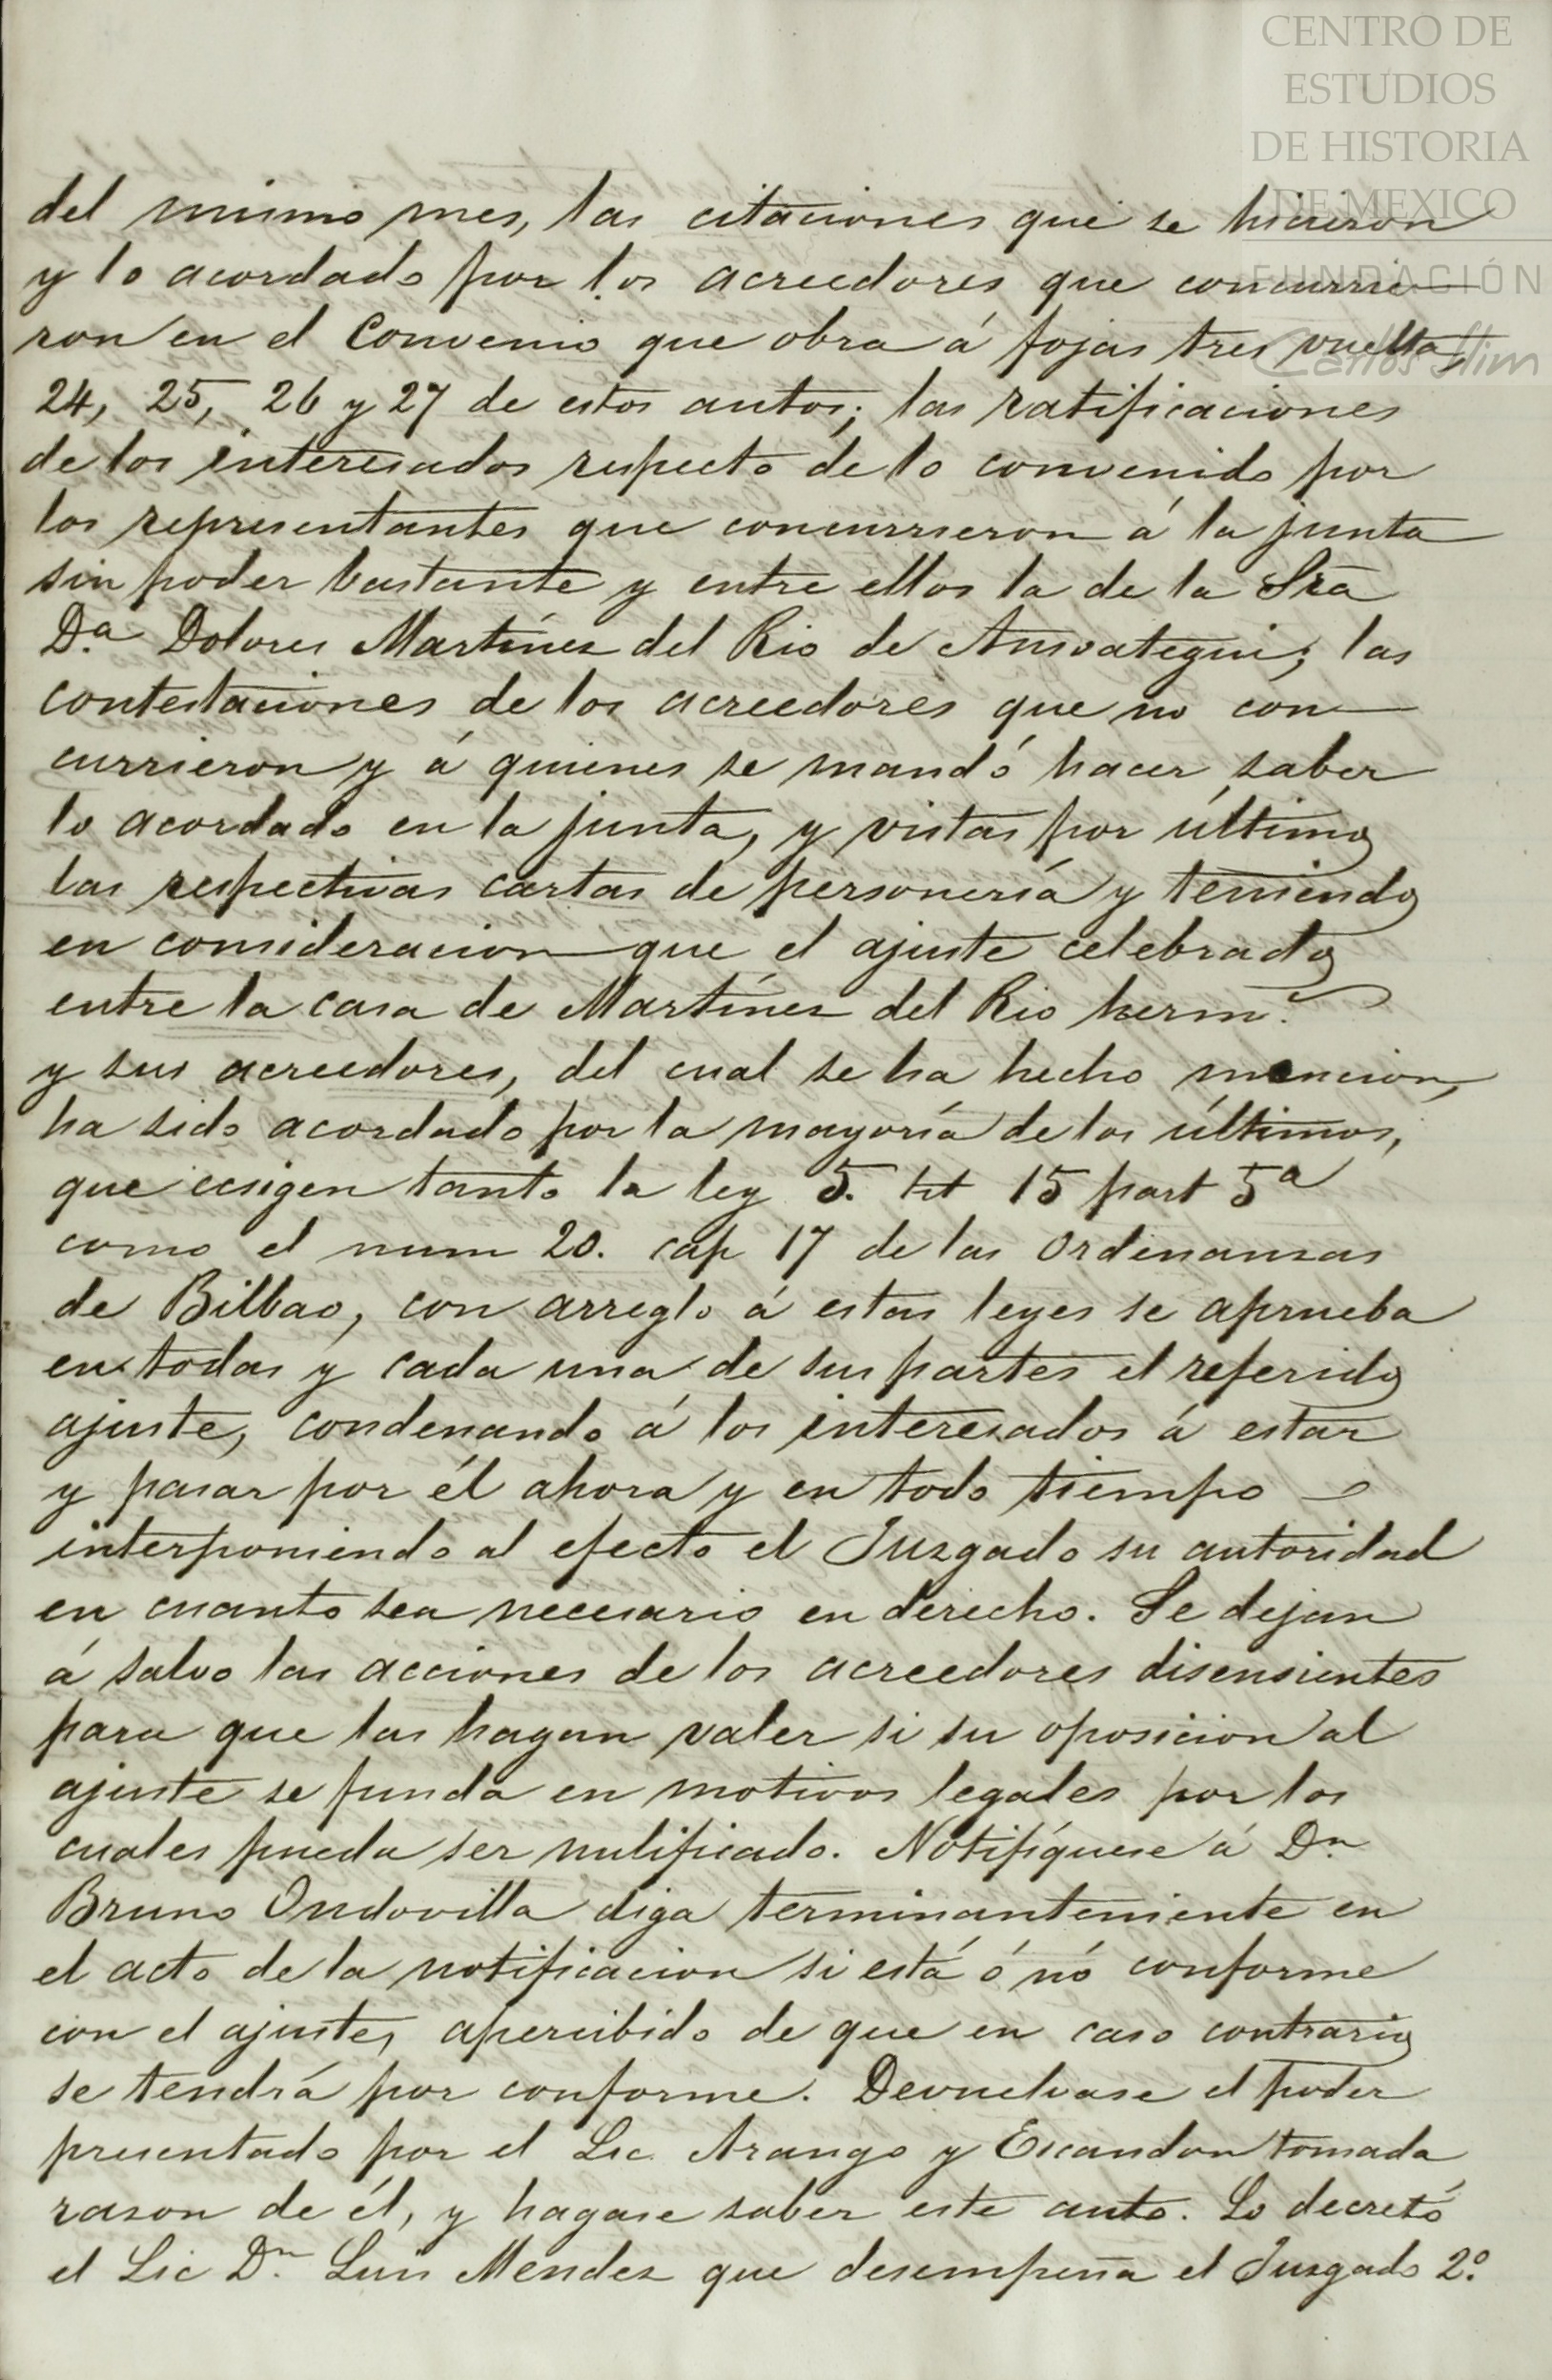 CENTRO DE
ESTUDIOS
DE HISTORIA
DE MEXICO
FUNDACIÓN
Carlos Slim
del mismo mes, las citaciones que se hicieron
y lo acordado por los acreedores que concurrie
ron en el Convenio que obra á fojas tres vuelta,
24, 25, 26 y 27 de estos autos; las ratificaciones
de los interesados respecto de lo convenido por
los representantes que concurrieron á la junta
sin poder bastante y entre ellos la de la Sra
D.a Dolores Martínez del Rio de Ansoategui; las
contestaciones de los acreedores que no con
currieron y á quienes se mandó hacer saber
lo acordado en la junta, y vistas por último
las respectivas cartas de personería y teniendo
en consideracion que el ajuste celebrado
entre la casa de Martínez del Rio herm.s
y sus acreedores, del cual se ha hecho mencion,
ha sido acordado por la mayoría de los últimos,
que ecsigen tanto la ley 5. tit 15 part 5a
como el num 20. cap 17 de las Ordenanzas
de Bilbao, con arreglo á estas leyes se aprueba
en todas y cada una de sus partes el referido
ajuste, condenando á los interesados á estar
y pasar por él ahora y en todo tiempo
interponiendo al efecto el Juzgado su autoridad
en cuanto sea necesario en derecho. Se dejan
á salvo las acciones de los acreedores disensientes
para que las hagan valer si su oposicion al
ajuste se funda en motivos legales por los
cuales pueda ser nulificado. Notifíquese á Dn
Bruno Ondovilla diga terminantemente en
el acto de la notificacion si está ó nó conforme
con el ajuste, apercibido de que en caso contrario
se tendrá por conforme. Devuelvase el poder
presentado por el Lic. Arango y Escandon tomada
razon de él, y hagase saber este auto. Lo decretó
el Lic D.n Luis Mendez que desempeña el Juzgado 2.o